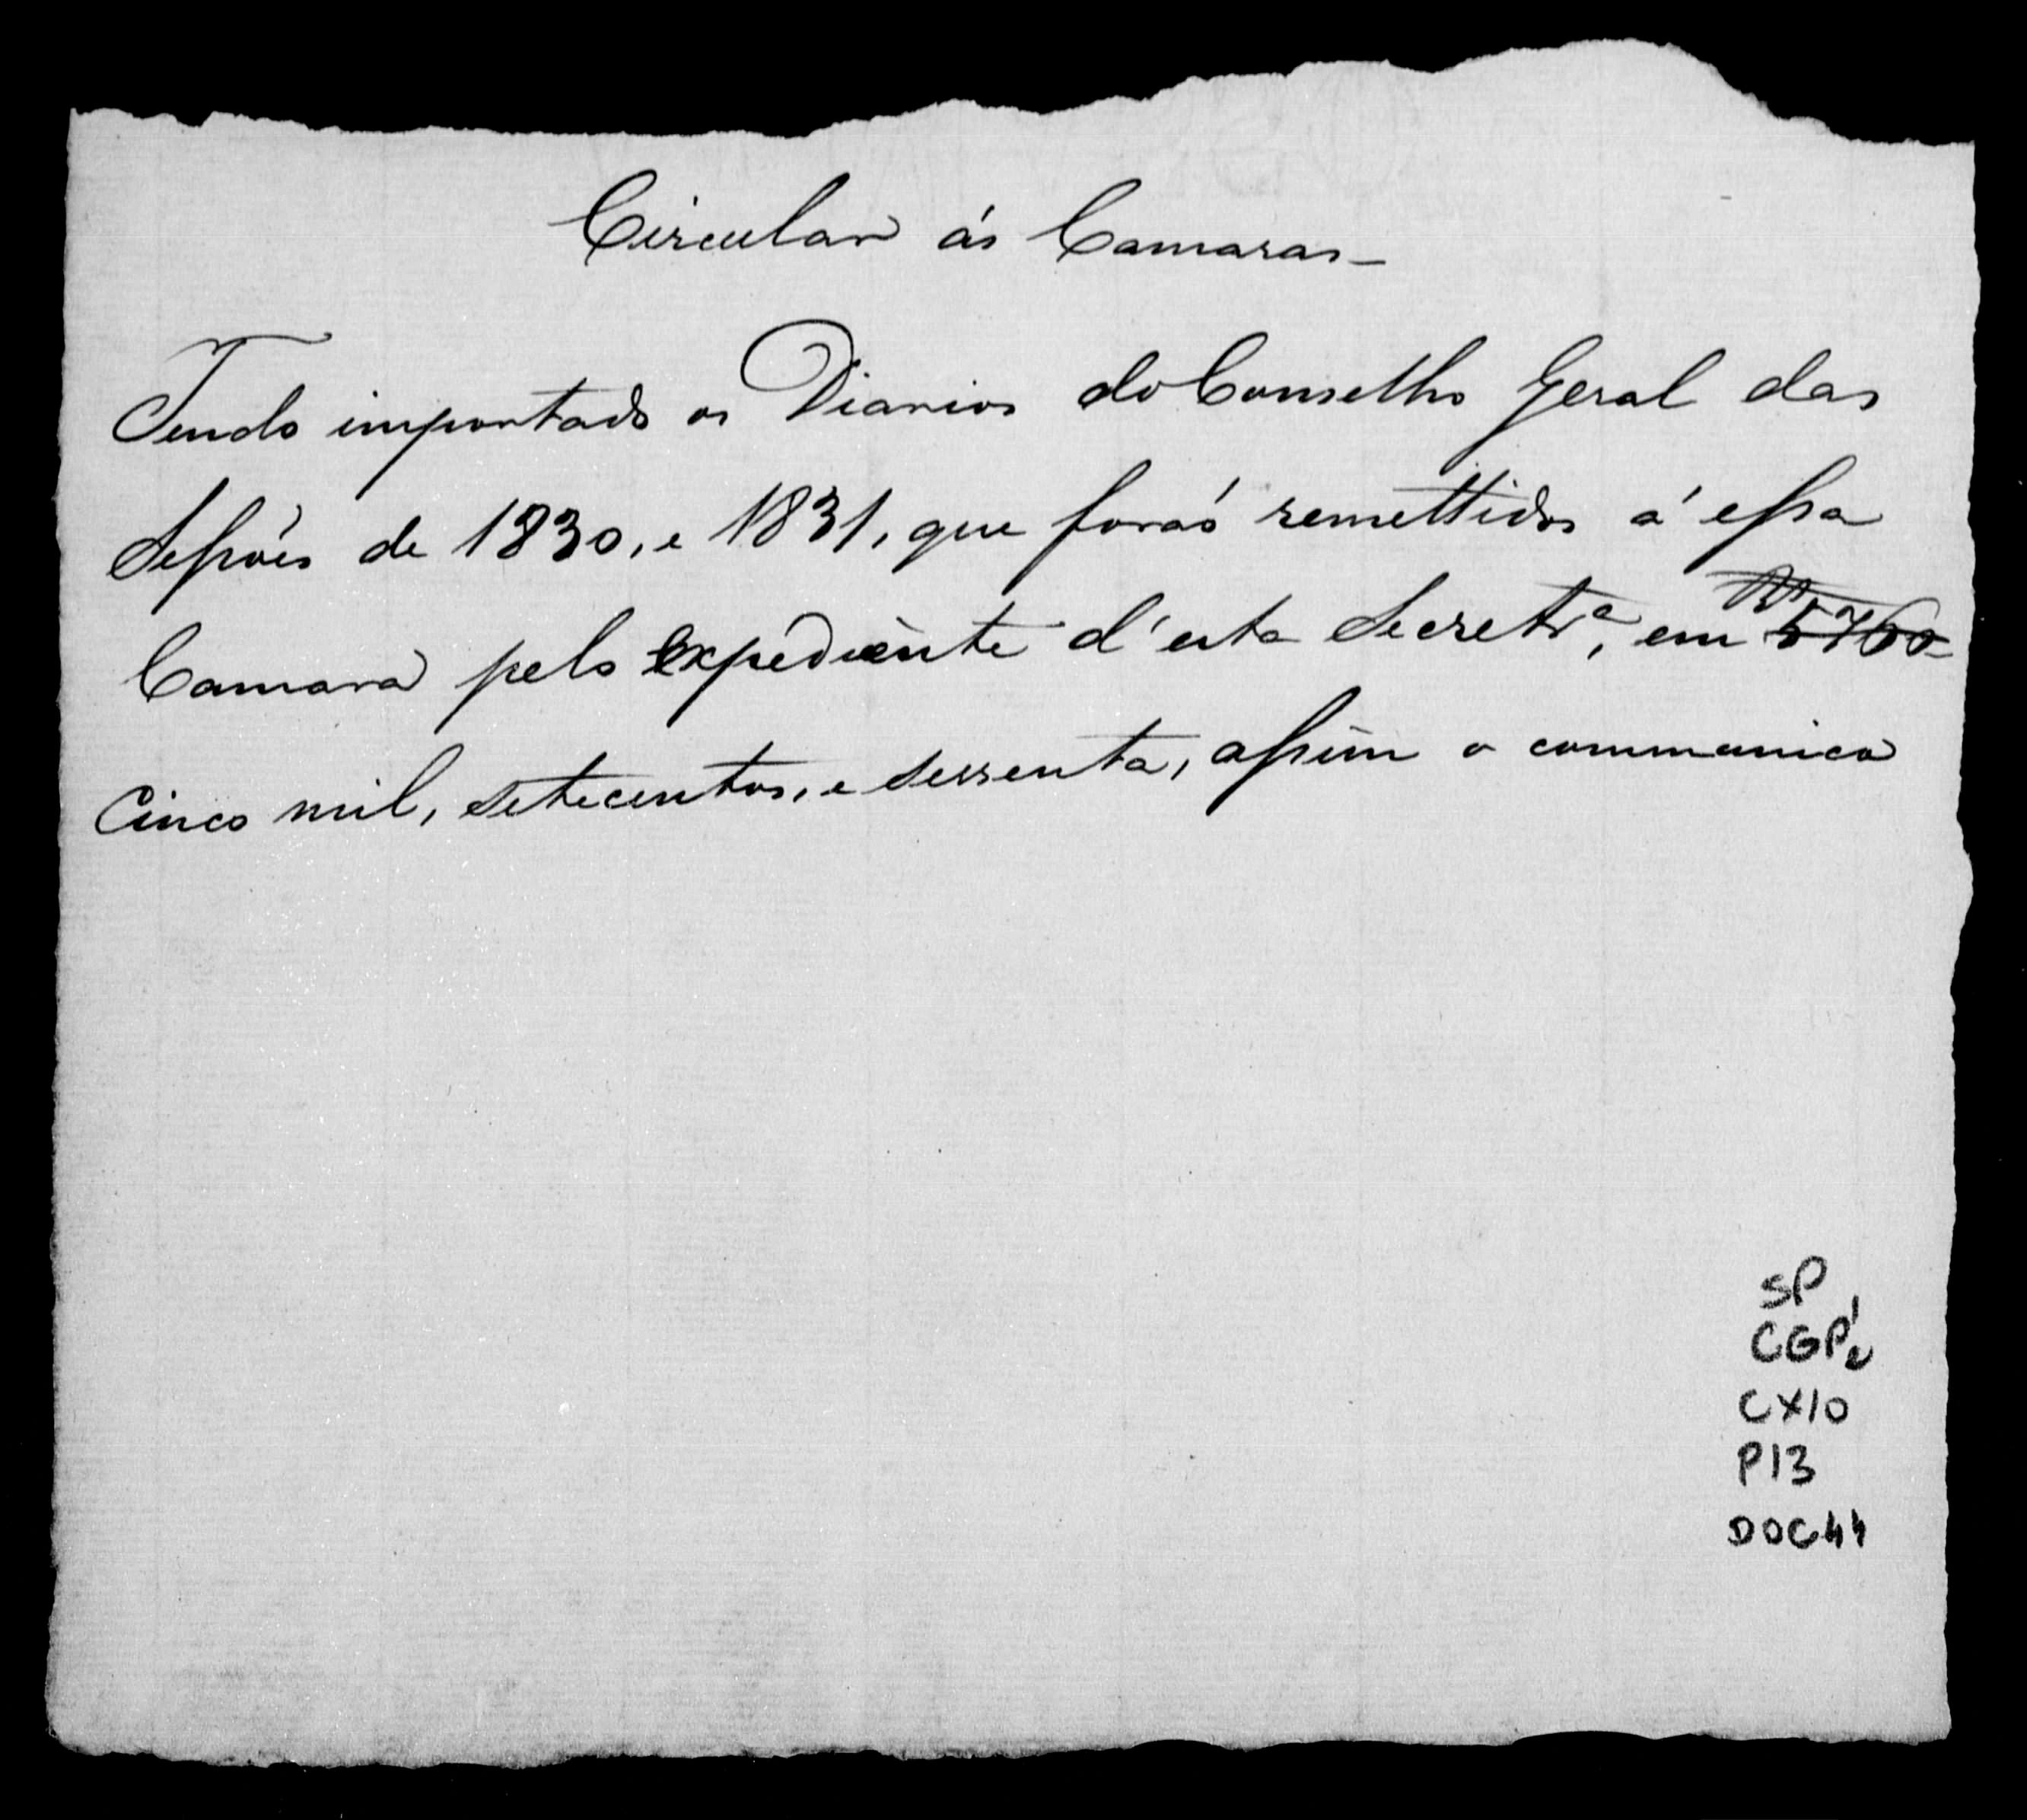 Circular ás Camaras_
Tendo importado os Diarios do Conselho Geral das
Sessoẽs de 1830, e 1831, que foraó remettidos á essa
Camara pelo Expediente d'esta Secretrª, em Rs 5760
Cinco mil, setecentos, e sessenta, assim o communico
SP
CGP1
2
CX10
P13
DOC44